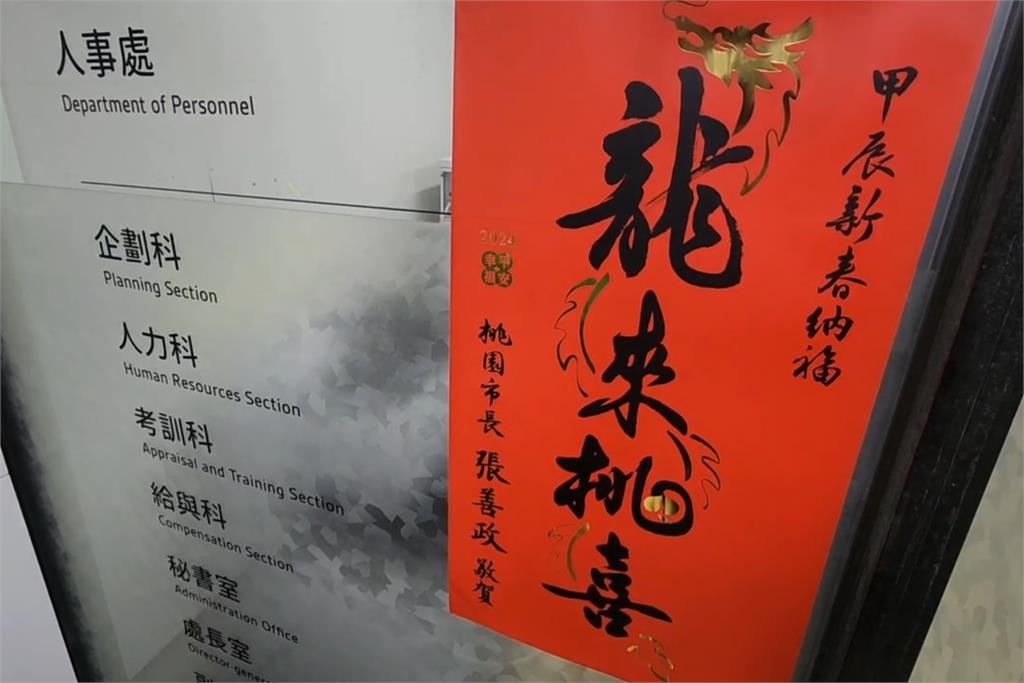 人事處
Department of Personnel
企劃科
Planning Section
人力科
Human Resources Section
考訓科
Appraisal and Training Section
給與科
Compensation Section
秘書室
Administration Office
處長室
甲辰新春納福
龍來桃喜
2024
幸福
平安
桃園市長 張善政 敬賀